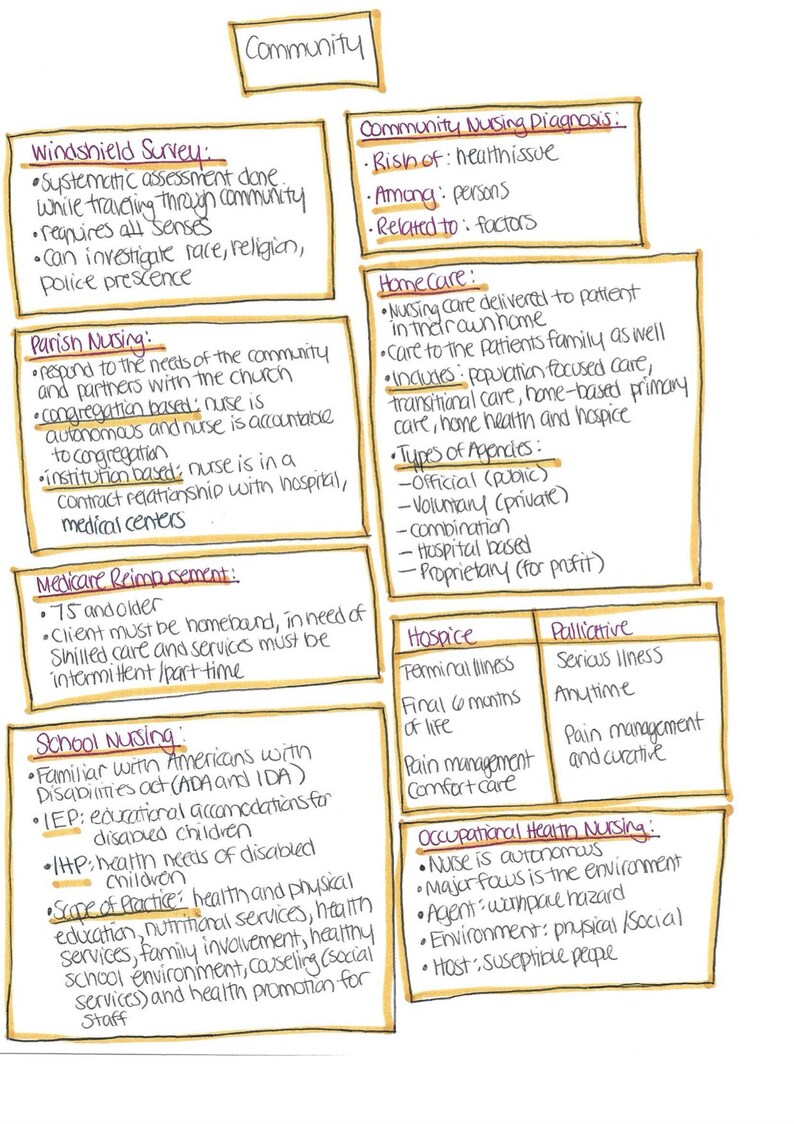 Community
Windshield Survey:
• Systematic assessment done
while traveling through community
• requires all senses
• Can investigate race, religion,
police prescence
Community Nursing Diagnosis:
• Risk of: health issue
• Among: persons
• Related to: factors
Parish Nursing:
• respond to the needs of the community
and partners with the church
• congregation based: nurse is
autonomous and nurse is accountable
to congregation
• institution based: nurse is in a
contract relationship with hospital,
medical centers
Home Care:
• Nursing care delivered to patient
in their own home
• Care to the patients family as well
• Includes: population focused care,
transitional care, home-based primary
care, home health and hospice
• Types of Agencies:
- Official (public)
- Voluntary (private)
- combination
- Hospital based
- Proprietary (for profit)
Medicare Reimbursement:
• 75 and older
• Client must be homebound, in need of
skilled care and services must be
intermittent/part-time
Hospice
Terminal Illness
Final 6 months
of life
Pain management
Comfort care
Palliative
Serious Illness
Anytime
Pain management
and curative
School Nursing:
• Familiar with Americans with
Disabilities act (ADA and IDA)
• IEP: educational accomodations for
disabled children
• IHP: health needs of disabled
children
• Scope of Practice: health and physical
education, nutritional services, health
services, family involvement, healthy
school environment, couseling (social
services) and health promotion for
staff
Occupational Health Nursing:
• Nurse is autonomous
• Major focus is the environment
• Agent: workplace hazard
• Environment: physical/Social
• Host: suseptible people